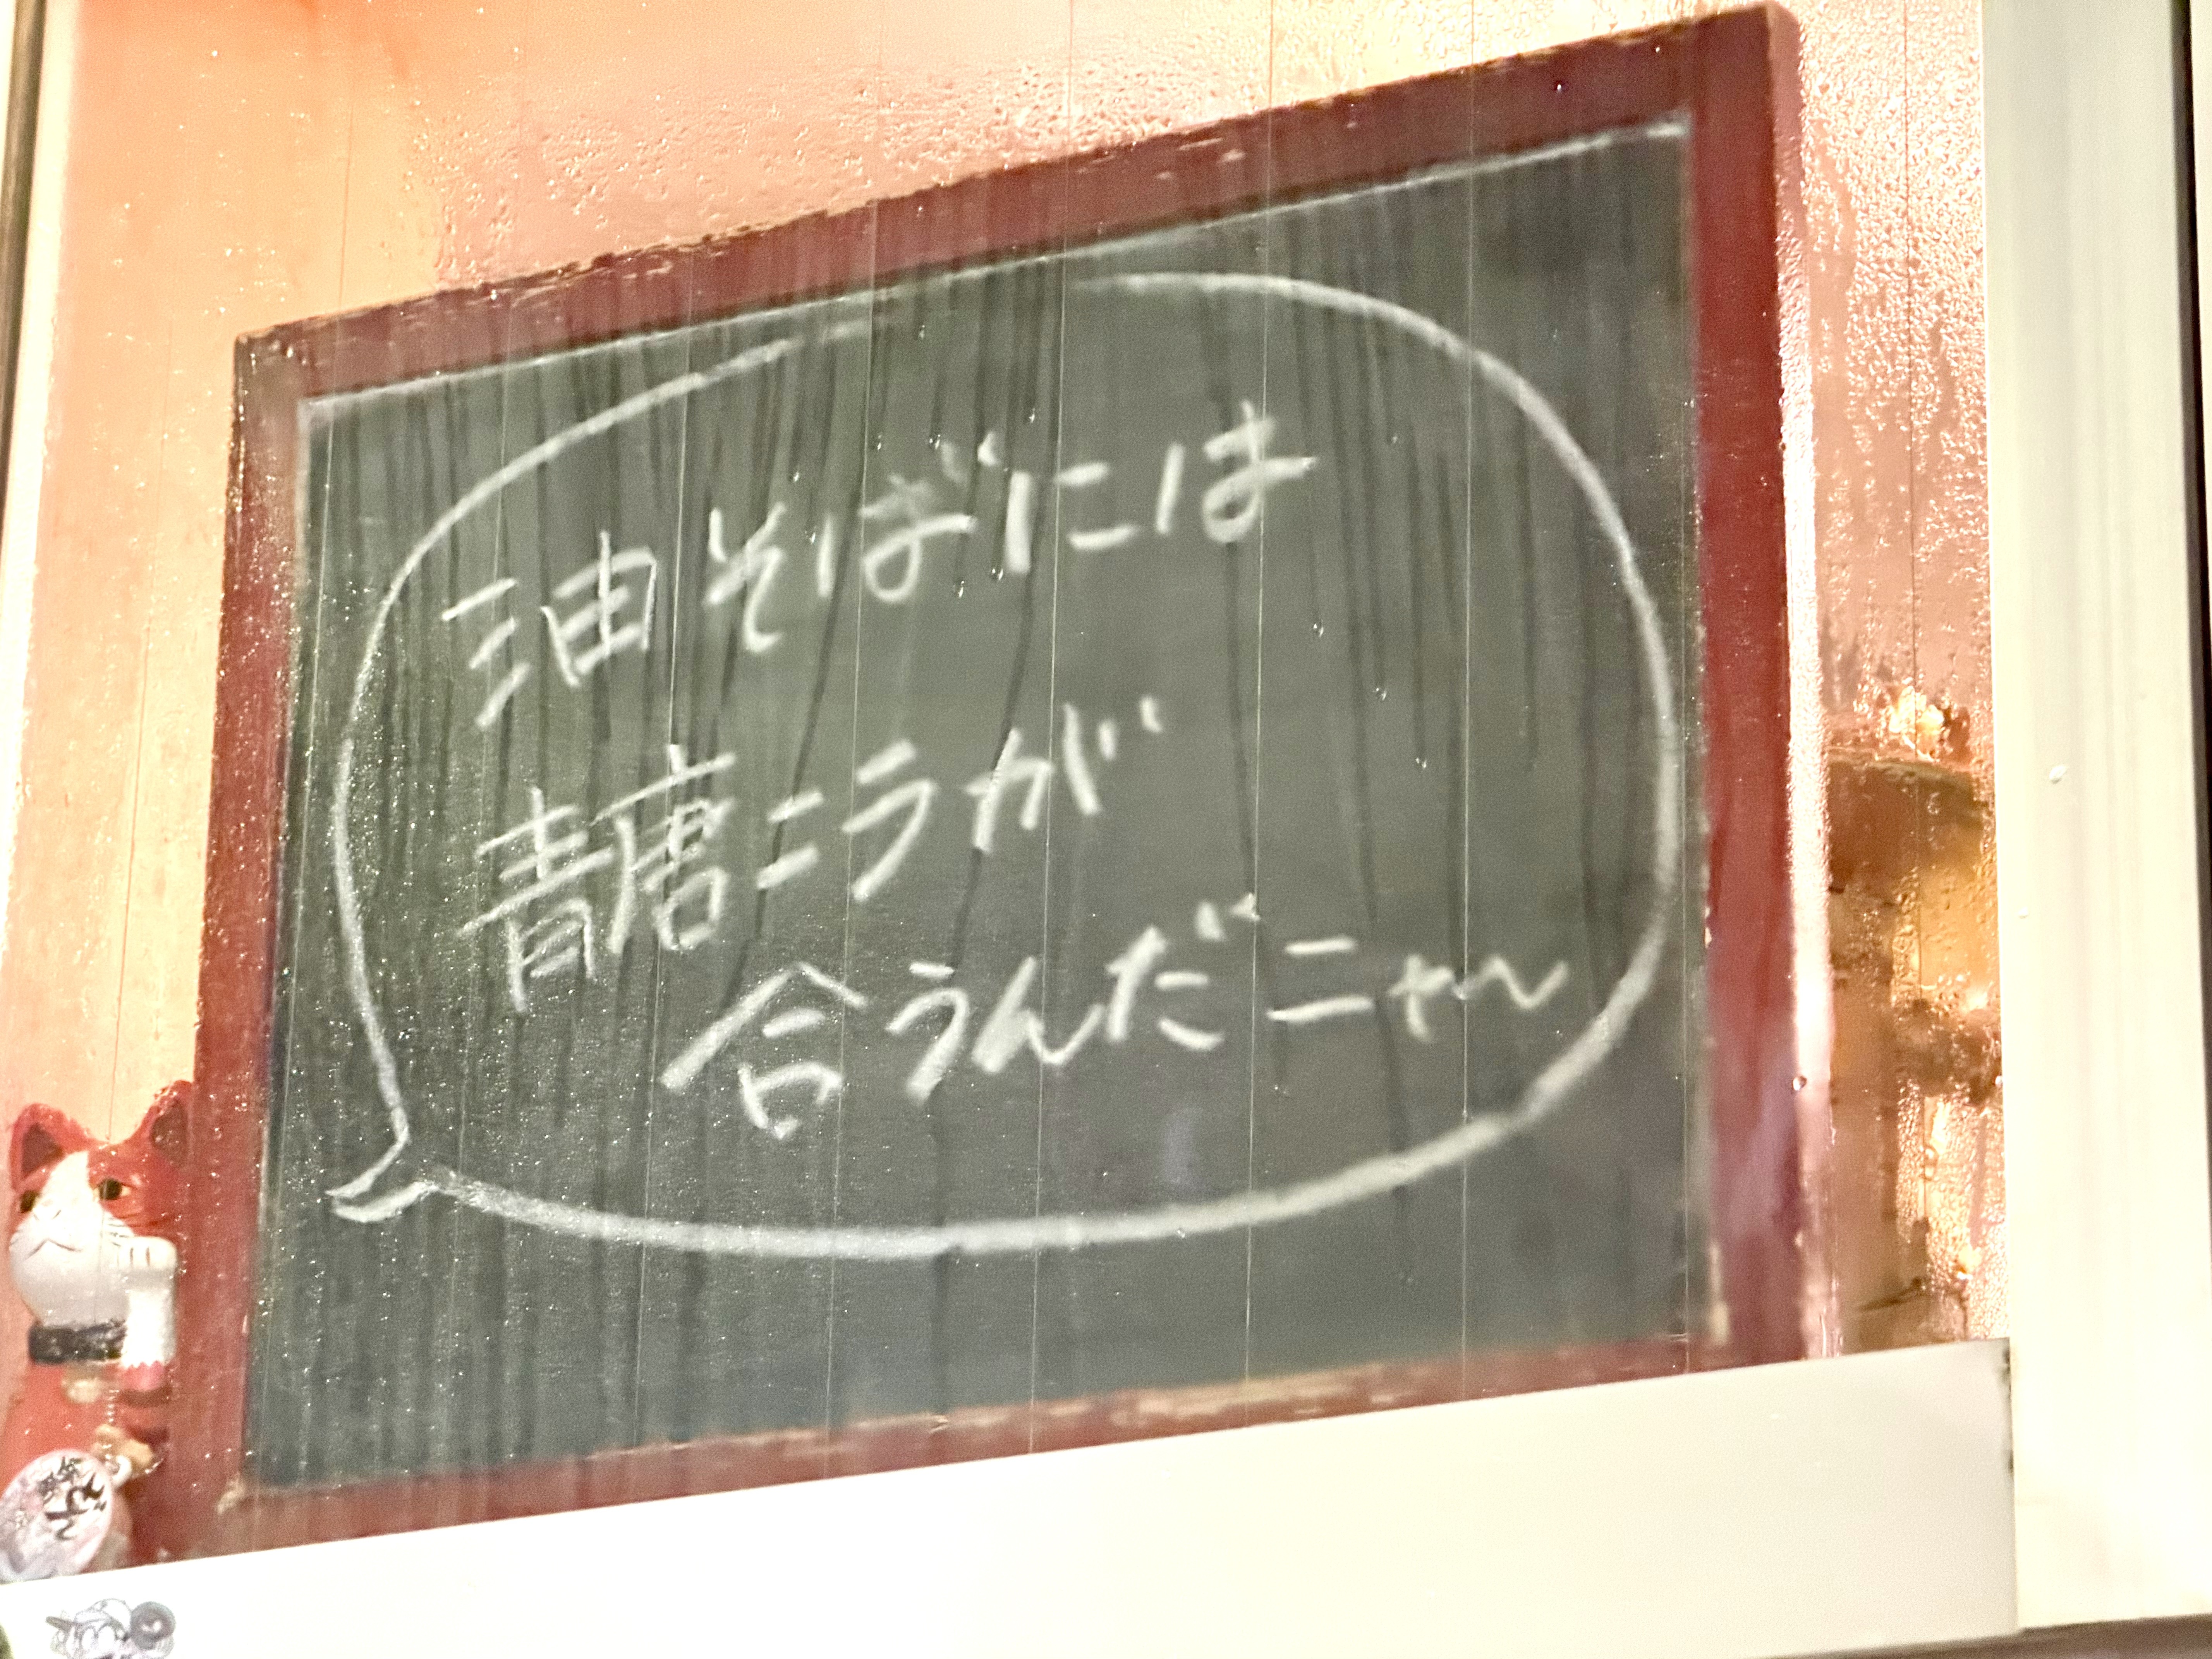 油そばには
青唐こうが
合うんだニャ〜